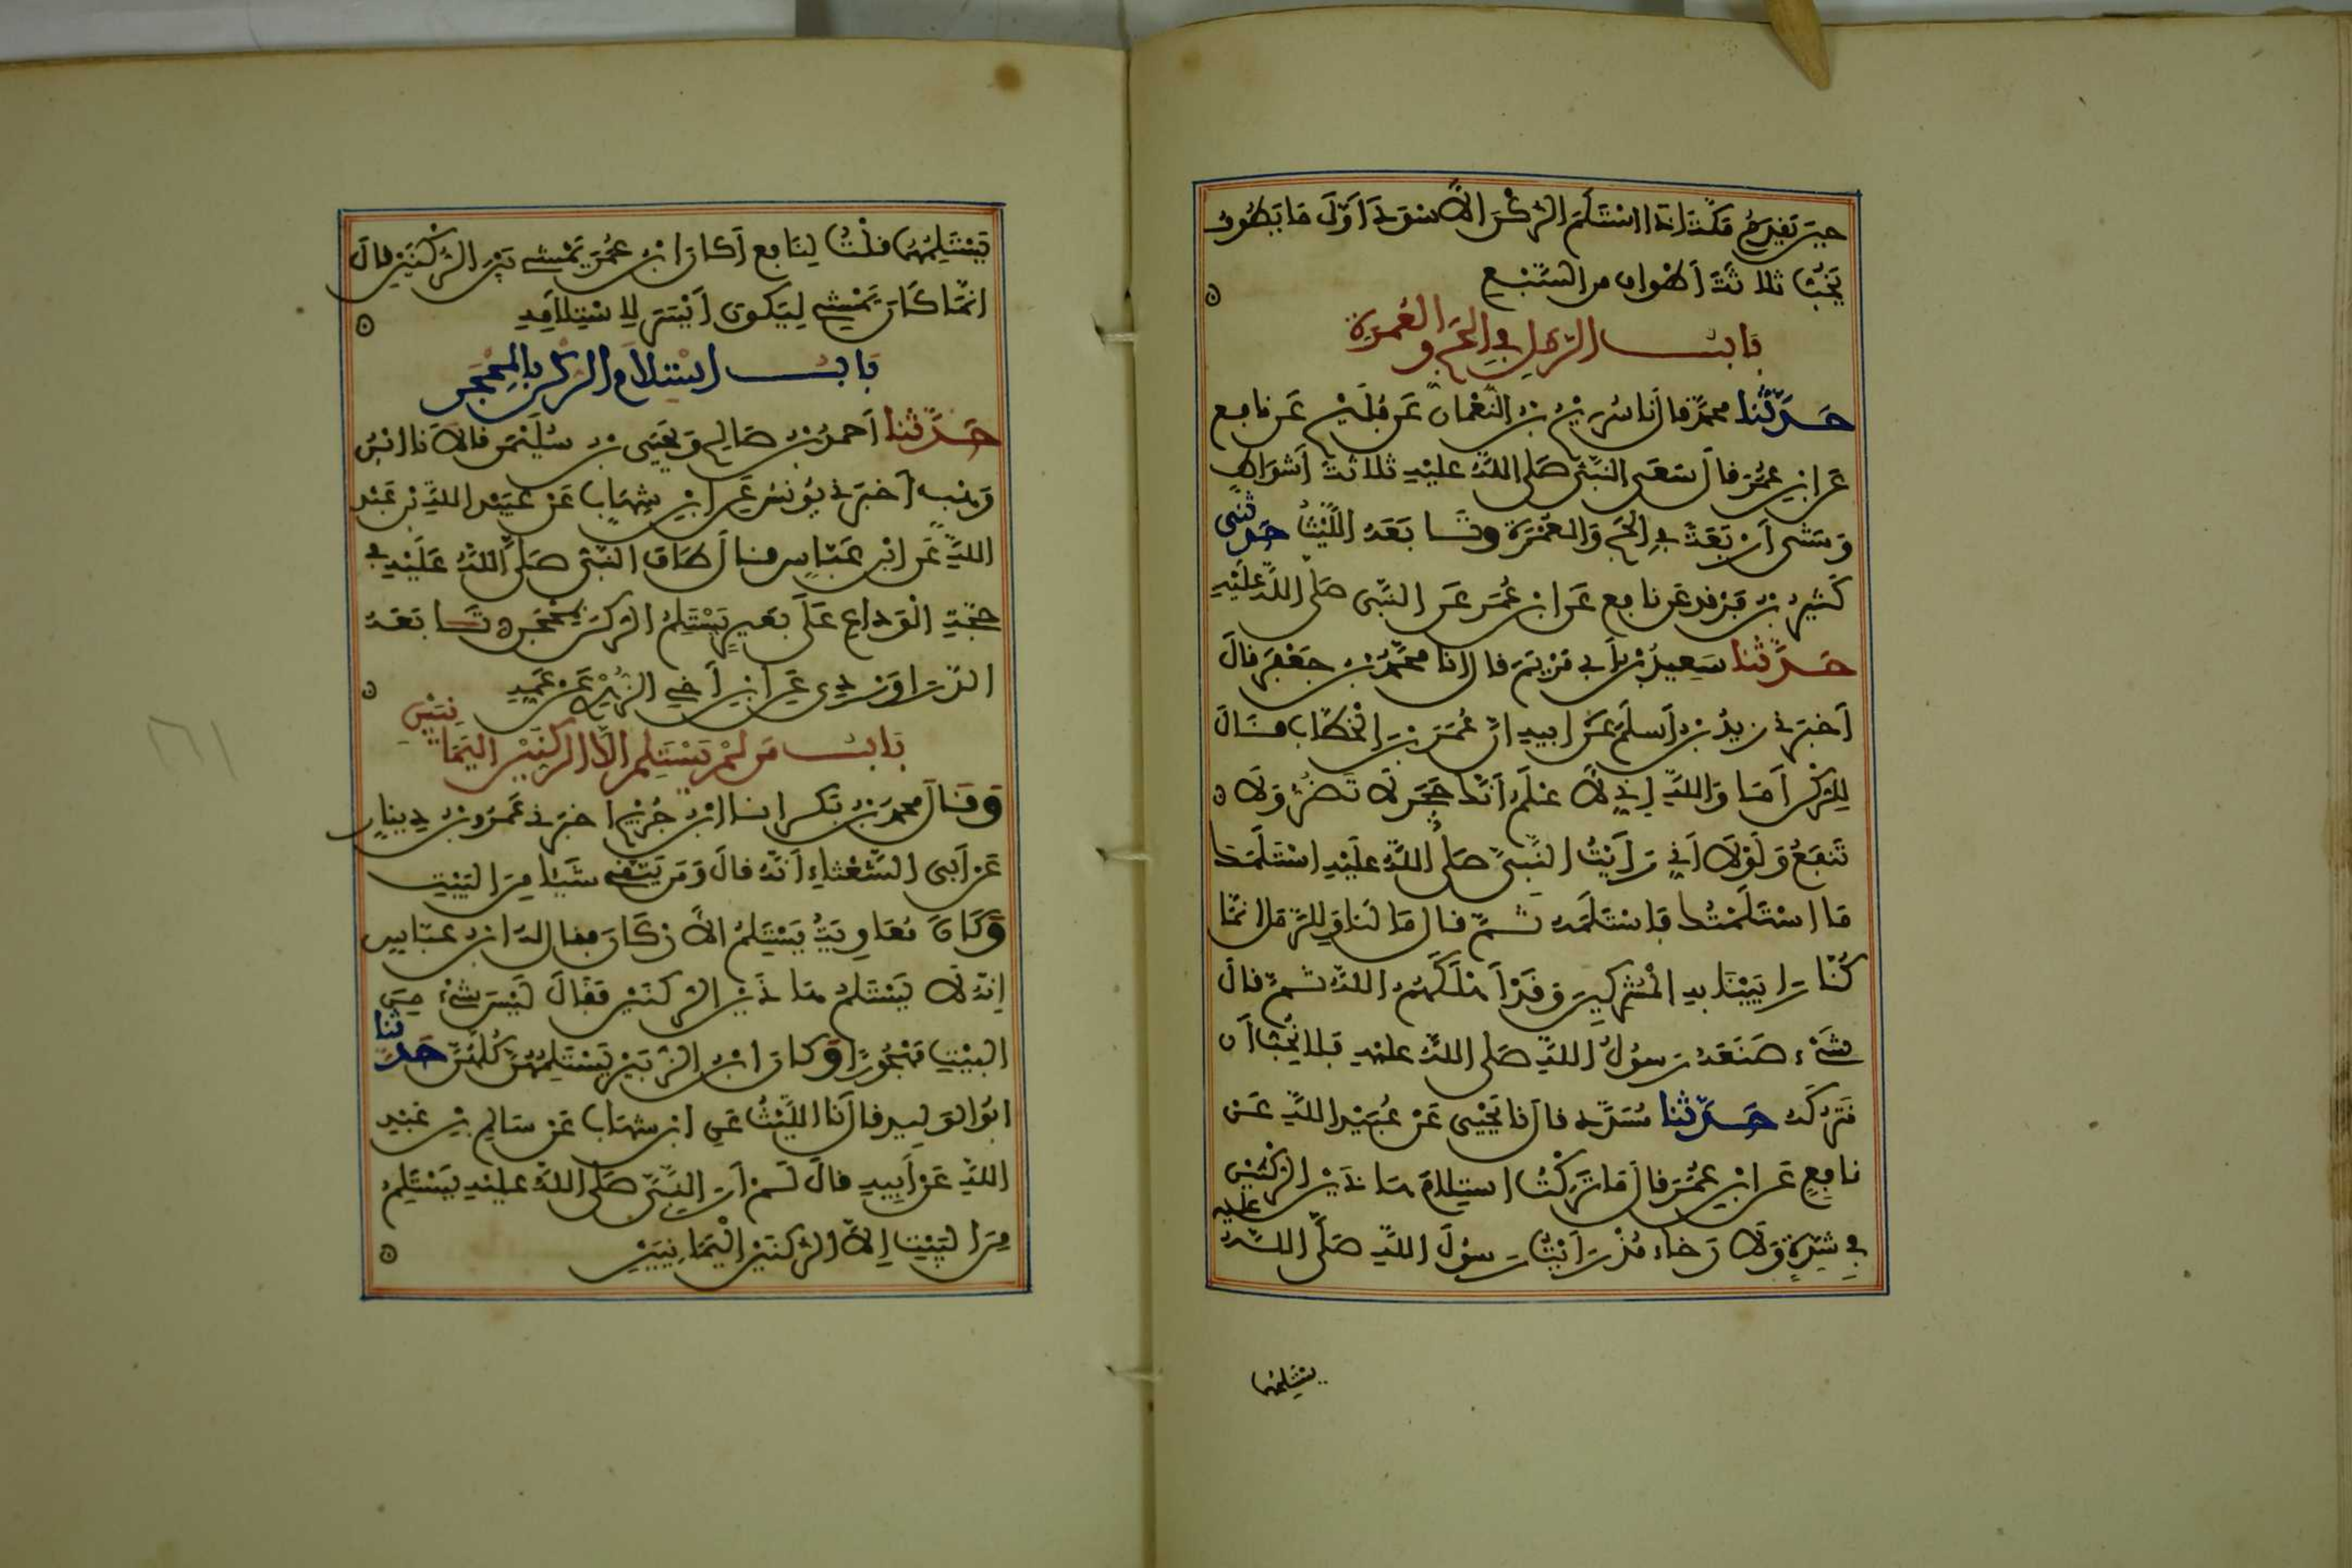 حين يقدم مكة اذا استلم الركن الاسود اول ما يطوف
يخب ثلاثة أطواف من السبع
باب الرمل في الحج والعمرة
حدثنا محمد قال نا سريج بن النعمان عن فليح عن نافع
عن ابن عمر قال سعى النبي صلى الله عليه ثلاثة أشواط
ومشى أربعة في الحج والعمرة وتابعه الليث حدثني
كثير بن فرقد عن نافع عن ابن عمر عن النبي صلى الله عليه
حدثنا سعيد بن أبي مريم قال انا محمد بن جعفر قال
أخبرني زيد بن أسلم عن ابيه ان عمر بن الخطاب قال
للركن أما والله إني لأعلم أنك حجر لا تضر ولا
تنفع ولولا أني رأيت النبي صلى الله عليه استلمك
ما استلمتك فاستلمه ثم قال ما لنا وللرمل انما
كنا راءينا به المشركين وقد أهلكهم الله ثم قال
شيء صنعه رسول الله صلى الله عليه فلا نحب أن
نتركه حدثنا مسدد قال نا يحيى عن عبيد الله عن
نافع عن ابن عمر قال ما تركت استلام هاذين الركنين
في شدة ولا رخاء مذ رأيت رسول الله صلى الله عليه
يستلمهما
يستلمهما قلت لنافع أكان ابن عمر يمشي بين الركنين قال
انما كان يمشي ليكون أيسر لاستلامه
باب استلام الركن بالمحجن
حدثنا أحمد بن صالح ويحيى بن سليمن قالا نا ابن
وهب أخبرني يونس عن ابن شهاب عن عبيد الله بن عبد
الله عن ابن عباس قال طاف النبي صلى الله عليه في
حجة الوداع على بعير يستلم الركن بمحجن تابعه
الدراوردي عن ابن أخي الزهري عن عمه
باب من لم يستلم الا الركنين اليمانيين
وقال محمد بن بكر انا ابن جريج أخبرني عمرو بن دينار
عن أبي الشعثاء أنه قال ومن يتقي شيئا من البيت
وكان معاوية يستلم الأركان فقال له ابن عباس
إنه لا يستلم هاذين الركنين فقال ليس شيء من
البيت مهجورا وكان ابن الزبير يستلمهن كلهن حدثنا
ابو الوليد قال نا الليث عن ابن شهاب عن سالم بن عبد
الله عن أبيه قال لم أر النبي صلى الله عليه يستلم
من البيت إلا الركنين اليمانيين
١٦١